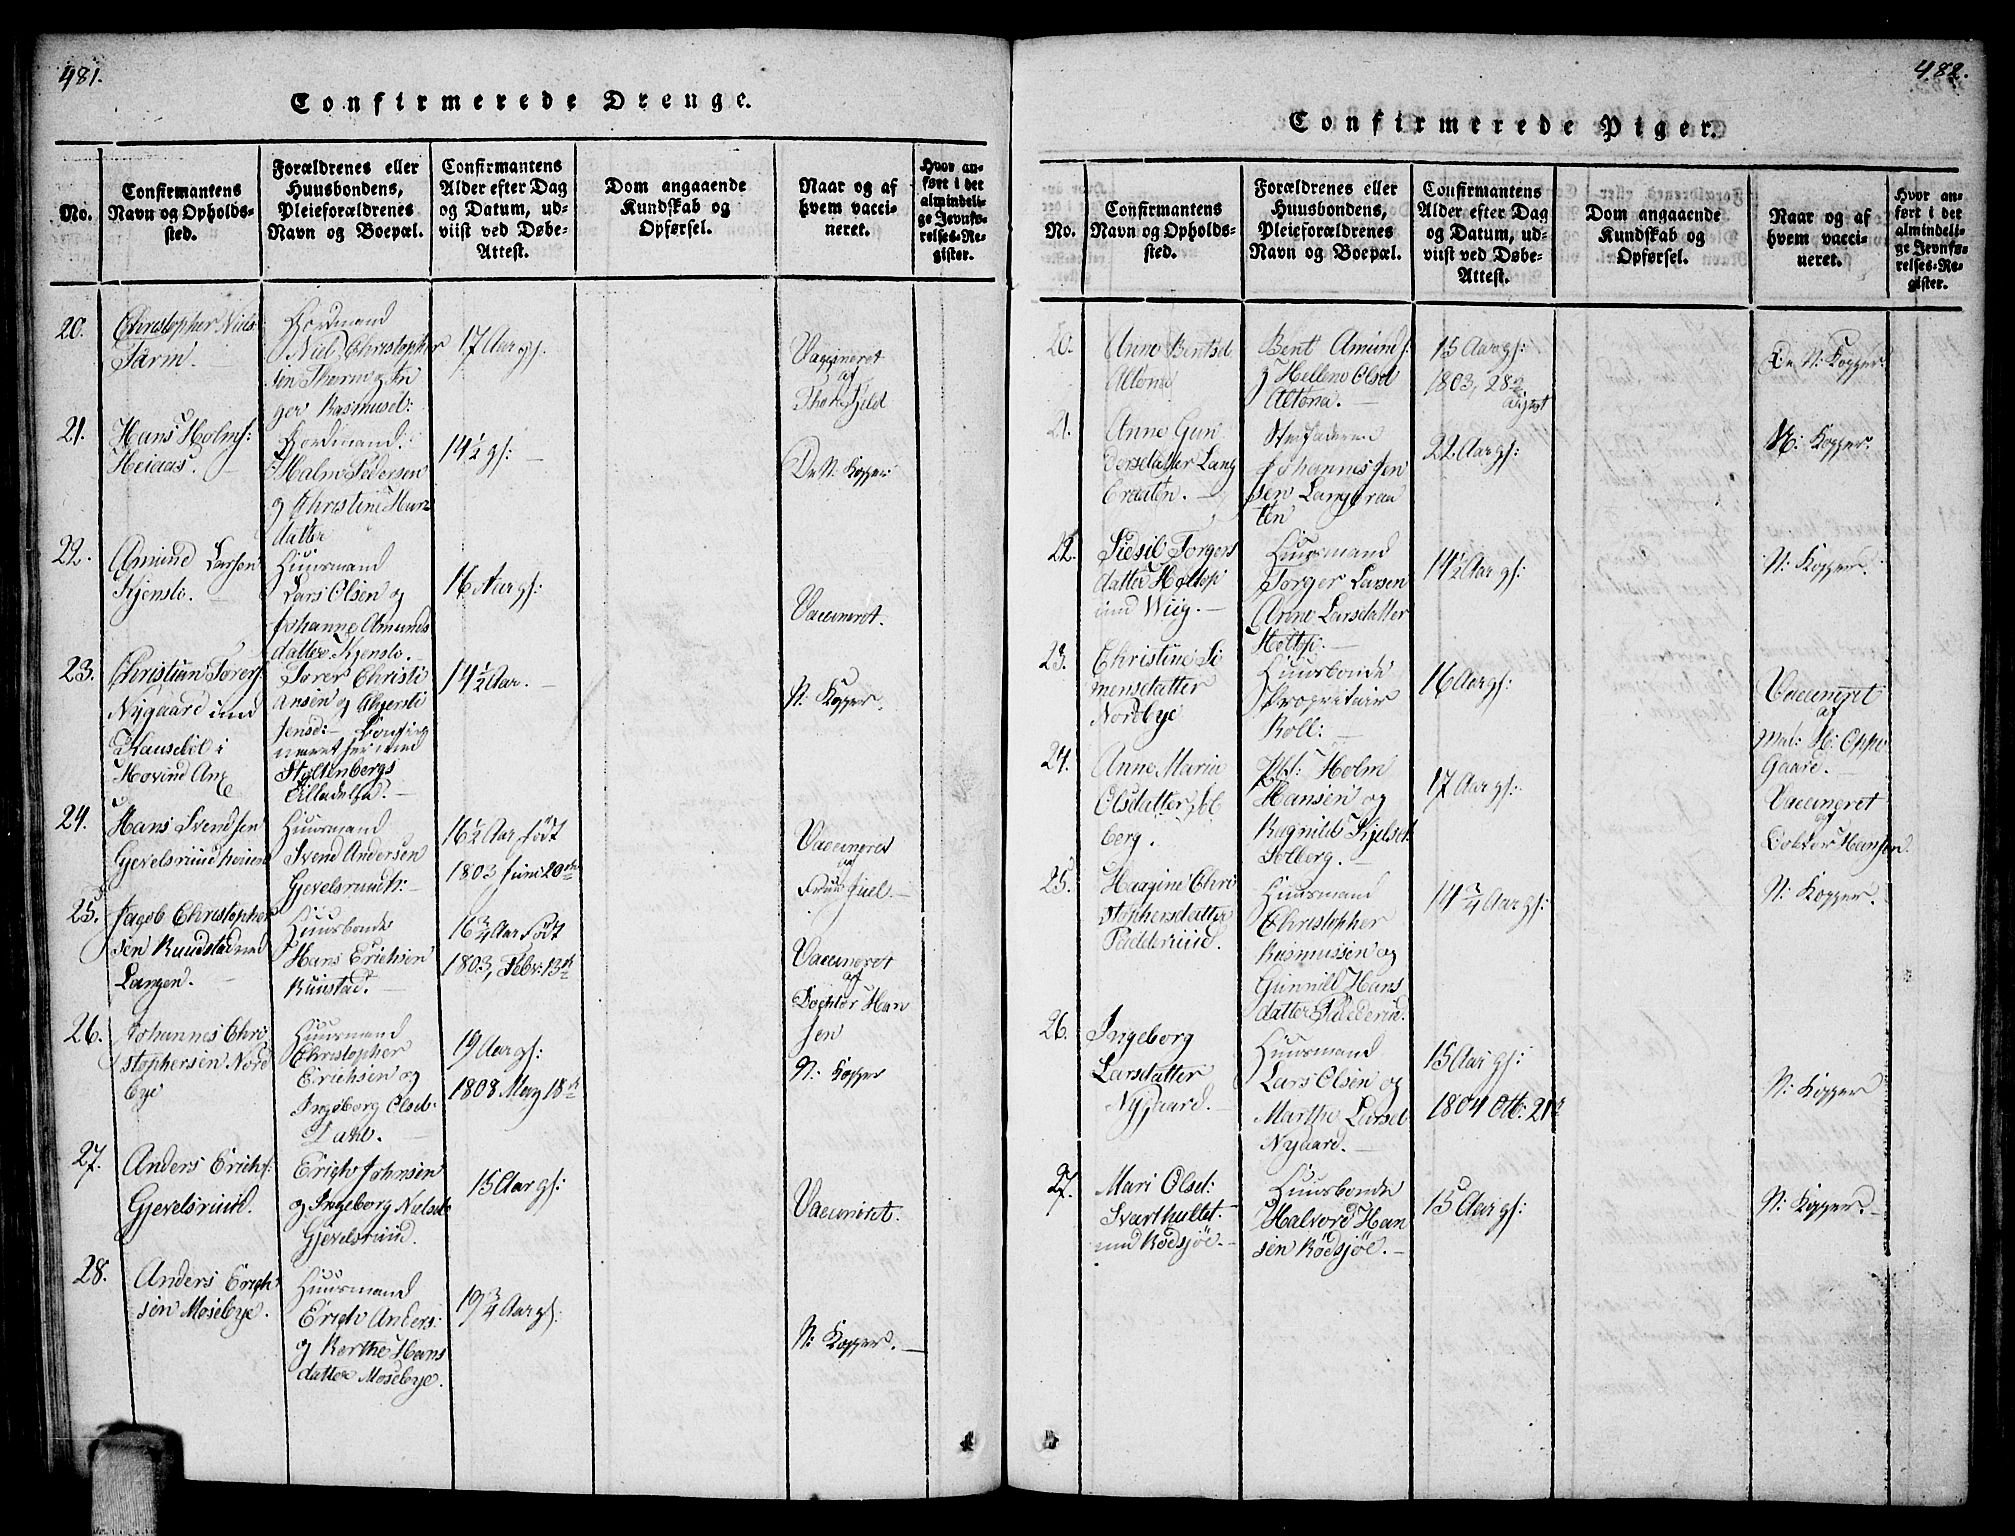 481.
Confirmerede Drenge.
No.
Confirmantens
Navn og Opholds-
sted.
Forældrenes eller
Huusbondens,
Pleieforældrenes
Navn og Boepæl.
Confirmantens
Alder efter Dag
og Datum, ud-
viist ved Døbe-
Attest.
Dom angaaende
Kundskab og
Opførsel.
Naar og af
hvem vacci-
neret.
Hvor an-
ført i det
almindeli-
ge Jevnfø-
relses-Re-
gister.
20.
Christopher Niels
Tårm.
Gordmand
Niels Christopher
sen Thorm og In
ger Rasmusd:
17 Aar gl.
Vaccineret
af
21.
Hans Holms:
Heiaas.
Gordmand
Holm Pedersen
og Christine Hans
datter
14½ gl:
De N: Kopper:
22.
Amund Larsen
Kjensli.
Huusmand
Lars Olsen og
Johanne Amunds
datter Kjensli.
16 Aar gl:
Vaccineret.
23.
Christian Torers
Nygaard ind
i
Hovind Anx
Torer Christi
ansen og Kjersti
Jensd:
Stoltenbergs
Tilladelse.
14½ Aar.
N: Kopper.
24.
Hans Svendsen
Gjevelsruud
Huusmand
Svend Andersen
Gjevelsruud:
16½ Aar født
1803 Juni 20de
Vaccineret
af
Frue Juel.
25.
Jacob Christopher
sen Ruudstad
Langen.
Huusbonde
Hans Erichsen
Ruustad.
16¾ Aar født
1803, Febr: 13de
Vaccineret
af
Docktor Han
sen
26.
Johannes Chri
stophersen Nord
bye
Huusmand
Christopher
Erichsen og
Ingeborg Olsd:
19 Aar gl:
N: Kopper
27.
Anders Erichs:
Gjevelsruud.
Erich Johnsen
og Ingeborg Nielsd:
Gjevelsruud.
15 Aar gl:
Vaccineret.
28.
Anders Erich
sen Mosebye.
Huusmand
Erich Anders:
og Berthe Hans
datter Mosebye.
19¾ Aar gl:
N: Kopper.
482.
Confirmerede Piger.
No.
Confirmantens
Navn og Opholds-
sted.
Forældrenes eller
Huusbondens,
Pleieforældrenes
Navn og Boepæl.
Confirmantens
Alder efter Dag
og Datum, ud-
viist ved Døbe-
Attest.
Dom angaaende
Kundskab og
Opførsel.
Naar og af
hvem vacci-
neret.
Hvor an-
ført i det
almindeli-
ge Jevnfø-
relses-Re-
gister.
20.
Anne Bentsd
Altona
Bent Amunds:
og Hellene Olsd
Altona.
15 Aar gl:
1803, 28de
August
De N: Kopper:
21.
Anne Gun
dersdatter Lang
braaten.
Stedfaderen
Johannes Jen
sen Langbraa
ten
22 Aar gl:
N: Kopper.
22.
Sidsil Torgers
datter Holtop
ind Wiig.
Huusmand
Torger Larsen
Anne Larsdatter
Holtop.
14½ Aar gl:
N: Kopper.
23.
Christine Si
mensdatter
Nordbye
Huusbonde
Proprietair
Roll:
16 Aar gl:
Vaccineret
af
Mad: H: Oppe
Gaard.
24.
Anne Maria
Olsdatter Sol
berg.
Holm
Hansen og
Ragnild Kjelsd:
Solberg.
17 Aar gl:
Vaccineret
af
Doktor Hansen.
25.
Haagine Chri
stophersdatter
Padderuud.
Huusmand
Christopher
Rasmussen og
Gunnild Hans
datter Padderud.
14¾ Aar gl:
N: Kopper.
26.
Ingeborg
Larsdatter
Nygaard.
Huusmand
Lars Olsen og
Marthe Larsd
Nygaard.
15 Aar gl:
1804 Oct: 21de
N: Kopper
27.
Mari Olsd:
Svarthultet.
ind Rødsjøe.
Huusbonde
Halvord Han
sen Rødsjøe.
15 Aar gl:
N: Kopper.